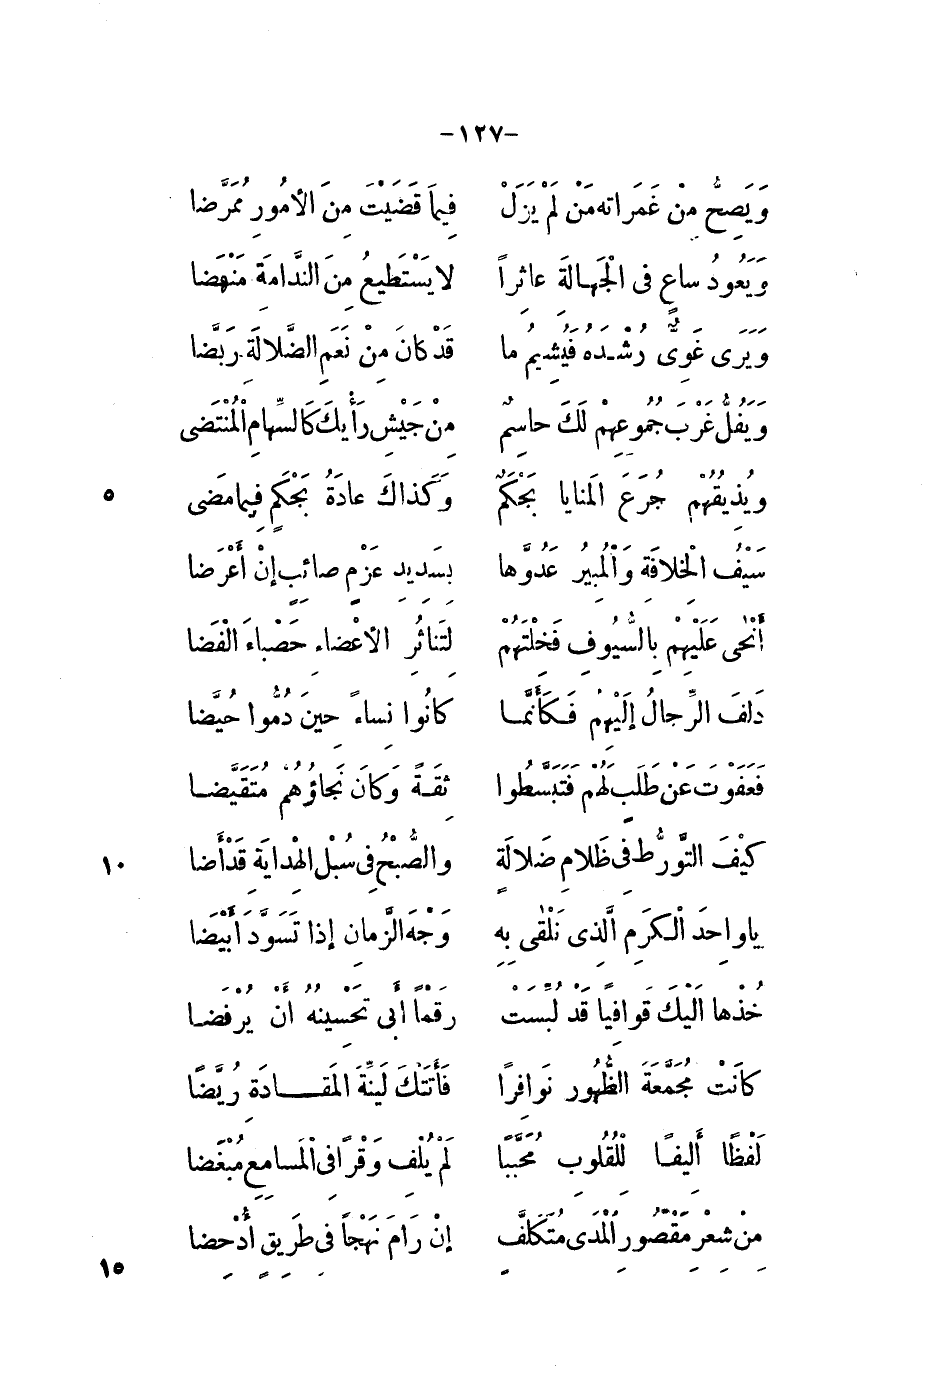 -١٢٧-
وَيَصِحُّ مِنْ غَمَرَاتِهِ مَنْ لَمْ يَزَلْ فِيمَا قَضَيْتَ مِنَ الأمُورِ مُمَرَّضا
وَيَعُودُ ساعٍ فى الْجَهالَةِ عاثِراً لا يَسْتَطِيعُ مِنَ النَّدامَةِ مَنْهَضا
وَيَرى غَوِىٌّ رُشْدَهُ فَيَشِيمُ ما قَدْ كانَ مِنْ نَعَمِ الضَّلالَةِ رَبَّضا
وَيَفُلُّ غَرْبَ جُموعِهِمْ لَكَ حاسِمٌ مِنْ جَيْشِ رَأْيِكَ كَالسِّهامِ الْمُنْتَضى
ويُذِيقُهُمْ جُرَعَ المَنايا بَجْكَمٌ وَكَذاكَ عادَةُ بَجْكَمٍ فِيما مَضى
٥
سَيْفُ الْخِلافَةِ وَالْمُبِيرُ عَدُوَّها بِسَدِيدِ عَزْمٍ صائِبٍ إنْ أَعْرَضا
أَنْحٰى عَلَيْهِمْ بِالسُّيُوفِ فَخِلْتَهُمْ لِتَناثُرِ الأعْضاءِ حَصْباءَ الْفَضا
دَلَفَ الرِّجالُ إلَيْهِمُ فَكَأَنَّما كانُوا نِساءً حِينَ ذُمُّوا حُيَّضا
فَعَفَوْتَ عَن طَلَبٍ لَهُمْ فَتَبَسَّطُوا ثِقَةً وَكَانَ نَجاؤُهُمْ مُتَقَيَّضا
كَيْفَ التَّوَرُّط فى ظَلامِ ضَلالَةٍ والصُّبْحُ فى سُبْلِ الهِْدايَةِ قَدْ أَضا
١٠
ياواحِدَ الْكَرَمِ الَّذِى نَلْقٰى بِهِ وَجْهَ الزَّمانِ إذا تَسَوَّدَ أَبْيَضا
خُذْها الَيْكَ قوافِياً قَدْ لُبِّسَتْ رَقْماً أبى تَحْسِينُهُ أنْ يُرْفَضا
كَانَتْ مُجَمَّعَةَ الظُّهُورِ نَوافِرًا فَأَتَتْكَ لَيِّنَةَ المَقادَةِ رُيَّضًا
لَفْظًا أَلِيفًا لِلْقُلوبِ مُحَبَّبًا لَمْ يُلْفِ وَقْرًا فى الْمَسامِعِ مُبْغَضا
مِنْ شِعْرِ مَقْصُورِ الْمَدَى مُتَكَلَّفٍ إنْ رَامَ نَهْجاً فى طَرِيقٍ أُدْحِضا
١٥